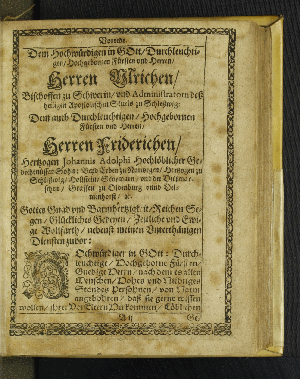 Vorrede.
Dem Hochwürdigen in GOtt/ Durchleuchti-
gen/ Hochgebornen Fürsten vnd Herren/
Herren Vlrichen/
Bischoffen zu Schwerin/ vnd Administratorn deß
Dem auch Durchleuchtigen/ Hochgebornen
Fürsten vnd Herren/
Herren Friderichen/
Hertzogen Johannis Adolphi Hochlöblicher Ge-
Erben zu Norwegen/ Hertzogen zu
Schleßwig/ Holstein/ Stormarn/ vnd der Ditmar-
schen/ Graffen zu Oldenburg vnnd Del-
menhorst/ ꝛc.
Gottes Gnad vnd Barmhertzigkeit/ Reichen Se-
gen/ Glückliches Gedeyen/ Zeitliche vnd Ewi-
ge Wolfarth/ nebenst meinen Vnterthänigen
Diensten zuvor:
HOchwürdiger in GOtt: Durch-
leuchtige/ Hochgeborne Fürsten/
Gnedige Herrn/ nach dem es allen
Menschen/ Hohes vnd Nidriges
Standes Persohnen/ von Natur
angebohren/ daß sie gerne wissen
wollen/ ihrer Vor Eltern Ankommen/ Löblichen
A ij
Ge-